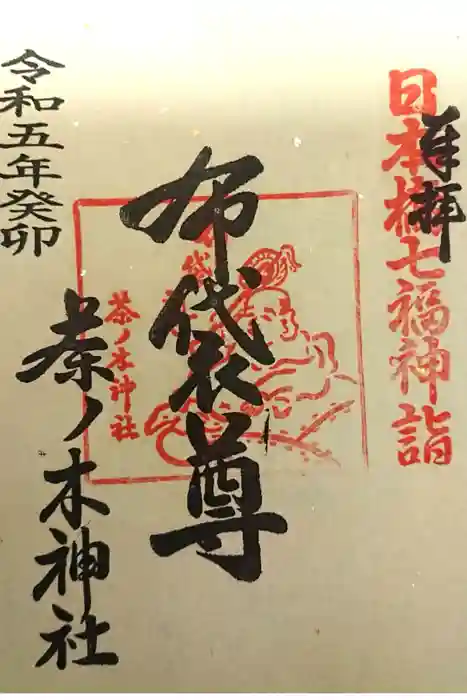 奉拝
日本橋七福神詣
布袋尊
茶ノ木神社
令和五年癸卯
茶ノ木神社